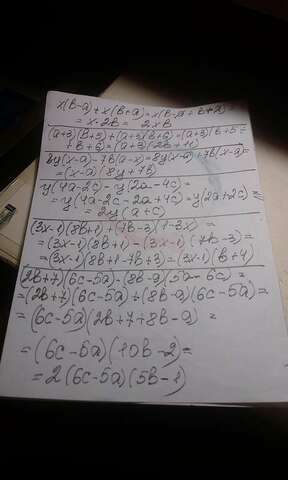 x(b-a)+x(b+a)=x(b-a+b+a)=
=x·2b= 2xb
(a+3)(b+5)+(a+3)(b+6)=(a+3)(b+5+
+b+6)=(a+3)(2b+11)
8y(x-a)-7b(a-x)=8y(x-a)+7b(x-a)=
=(x-a)(8y+7b)
y(4a-2c)-y(2a-4c)=
=y(4a-2c-2a+4c)=y(2a+2c)=
=2y(a+c)
(3x-1)(8b+1)+(7b-3)(1-3x)=
=(3x-1)(8b+1)-(3x-1)(7b-3)=
=(3x-1)(8b+1-7b+3)=(3x-1)(b+4)
(2b+7)(6c-5a)-(8b-9)(5a-6c)=
=(2b+7)(6c-5a)+(8b-9)(6c-5a)=
=(6c-5a)(2b+7+8b-9)=
=(6c-5a)(10b-2)=
=2(6c-5a)(5b-1)